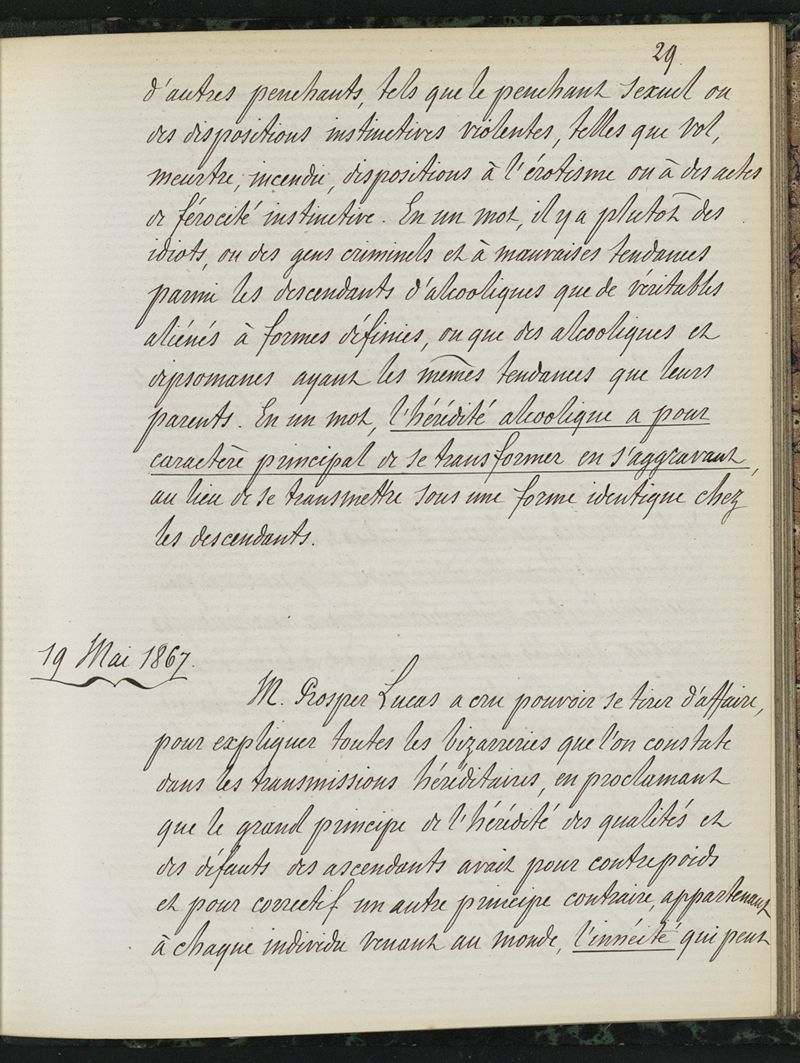 29
d'autres penchants, tels que le penchant sexuel ou
des dispositions instinctives violentes, telles que vol,
meurtre, incendie, dispositions à l'érotisme ou à des actes
de férocité instinctive. En un mot, il y a plutôt des
idiots, ou des gens criminels et à mauvaises tendances
parmi les descendants d'alcooliques que de véritables
aliénés à formes définies, ou que des alcooliques et
dipsomanes ayant les mêmes tendances que leurs
parents. En un mot, l'hérédité alcoolique a pour
caractère principal de se transformer en s'aggravant,
au lieu de se transmettre sous une forme identique chez
les descendants.
19 Mai 1867.
M. Prosper Lucas a cru pouvoir se tirer d'affaire,
pour expliquer toutes les bizarreries que l'on constate
dans les transmissions héréditaires, en proclamant
que le grand principe de l'hérédité des qualités et
des défauts des ascendants avait pour contrepoids
et pour correctif un autre principe contraire, appartenant
à chaque individu venant au monde, l'innéité qui peut